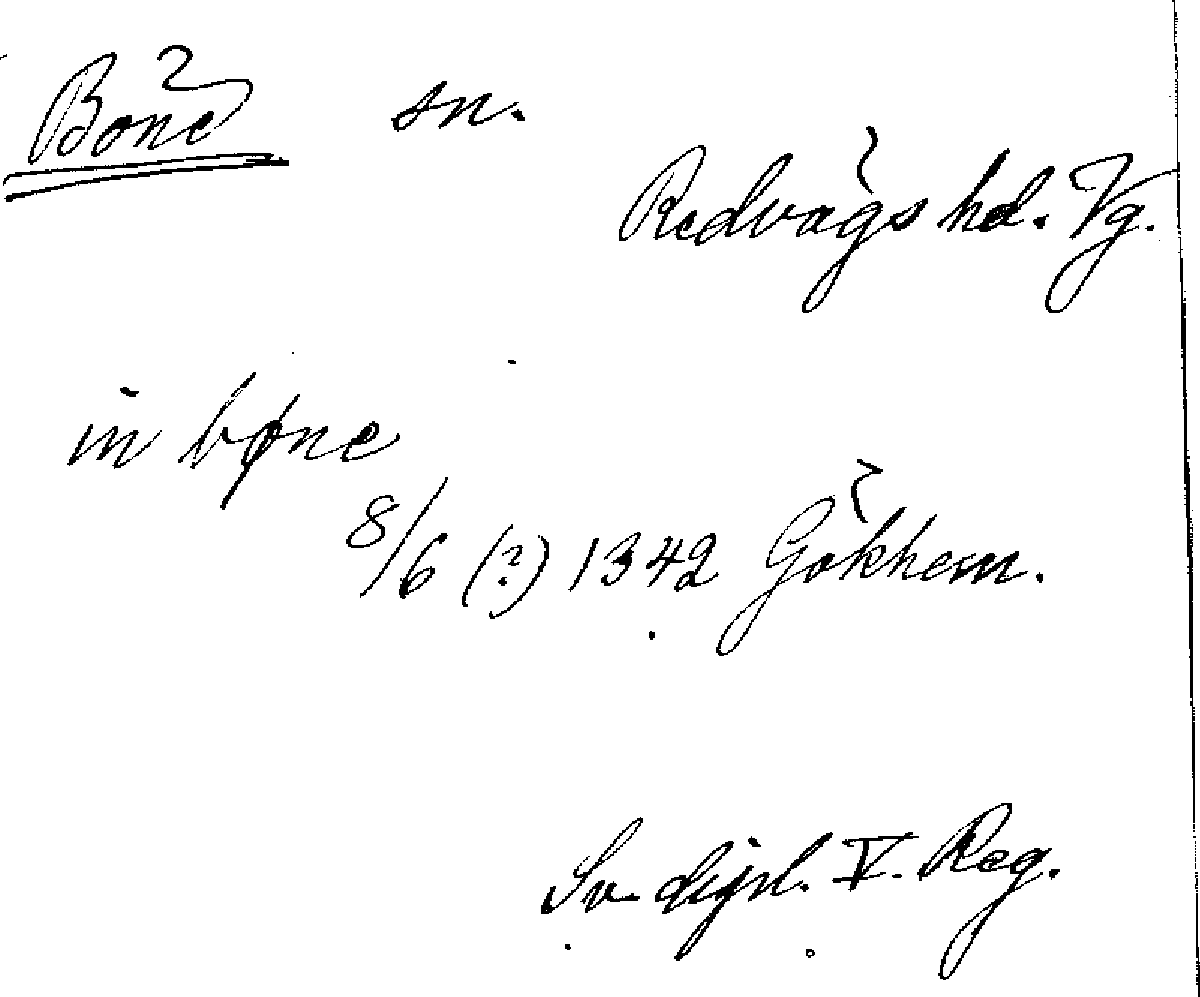 Böne sn.
Redvägs hd. Vg.
in bøne
8/6 (?) 1342 Gökhem.
Sv. dipl. V. Reg.